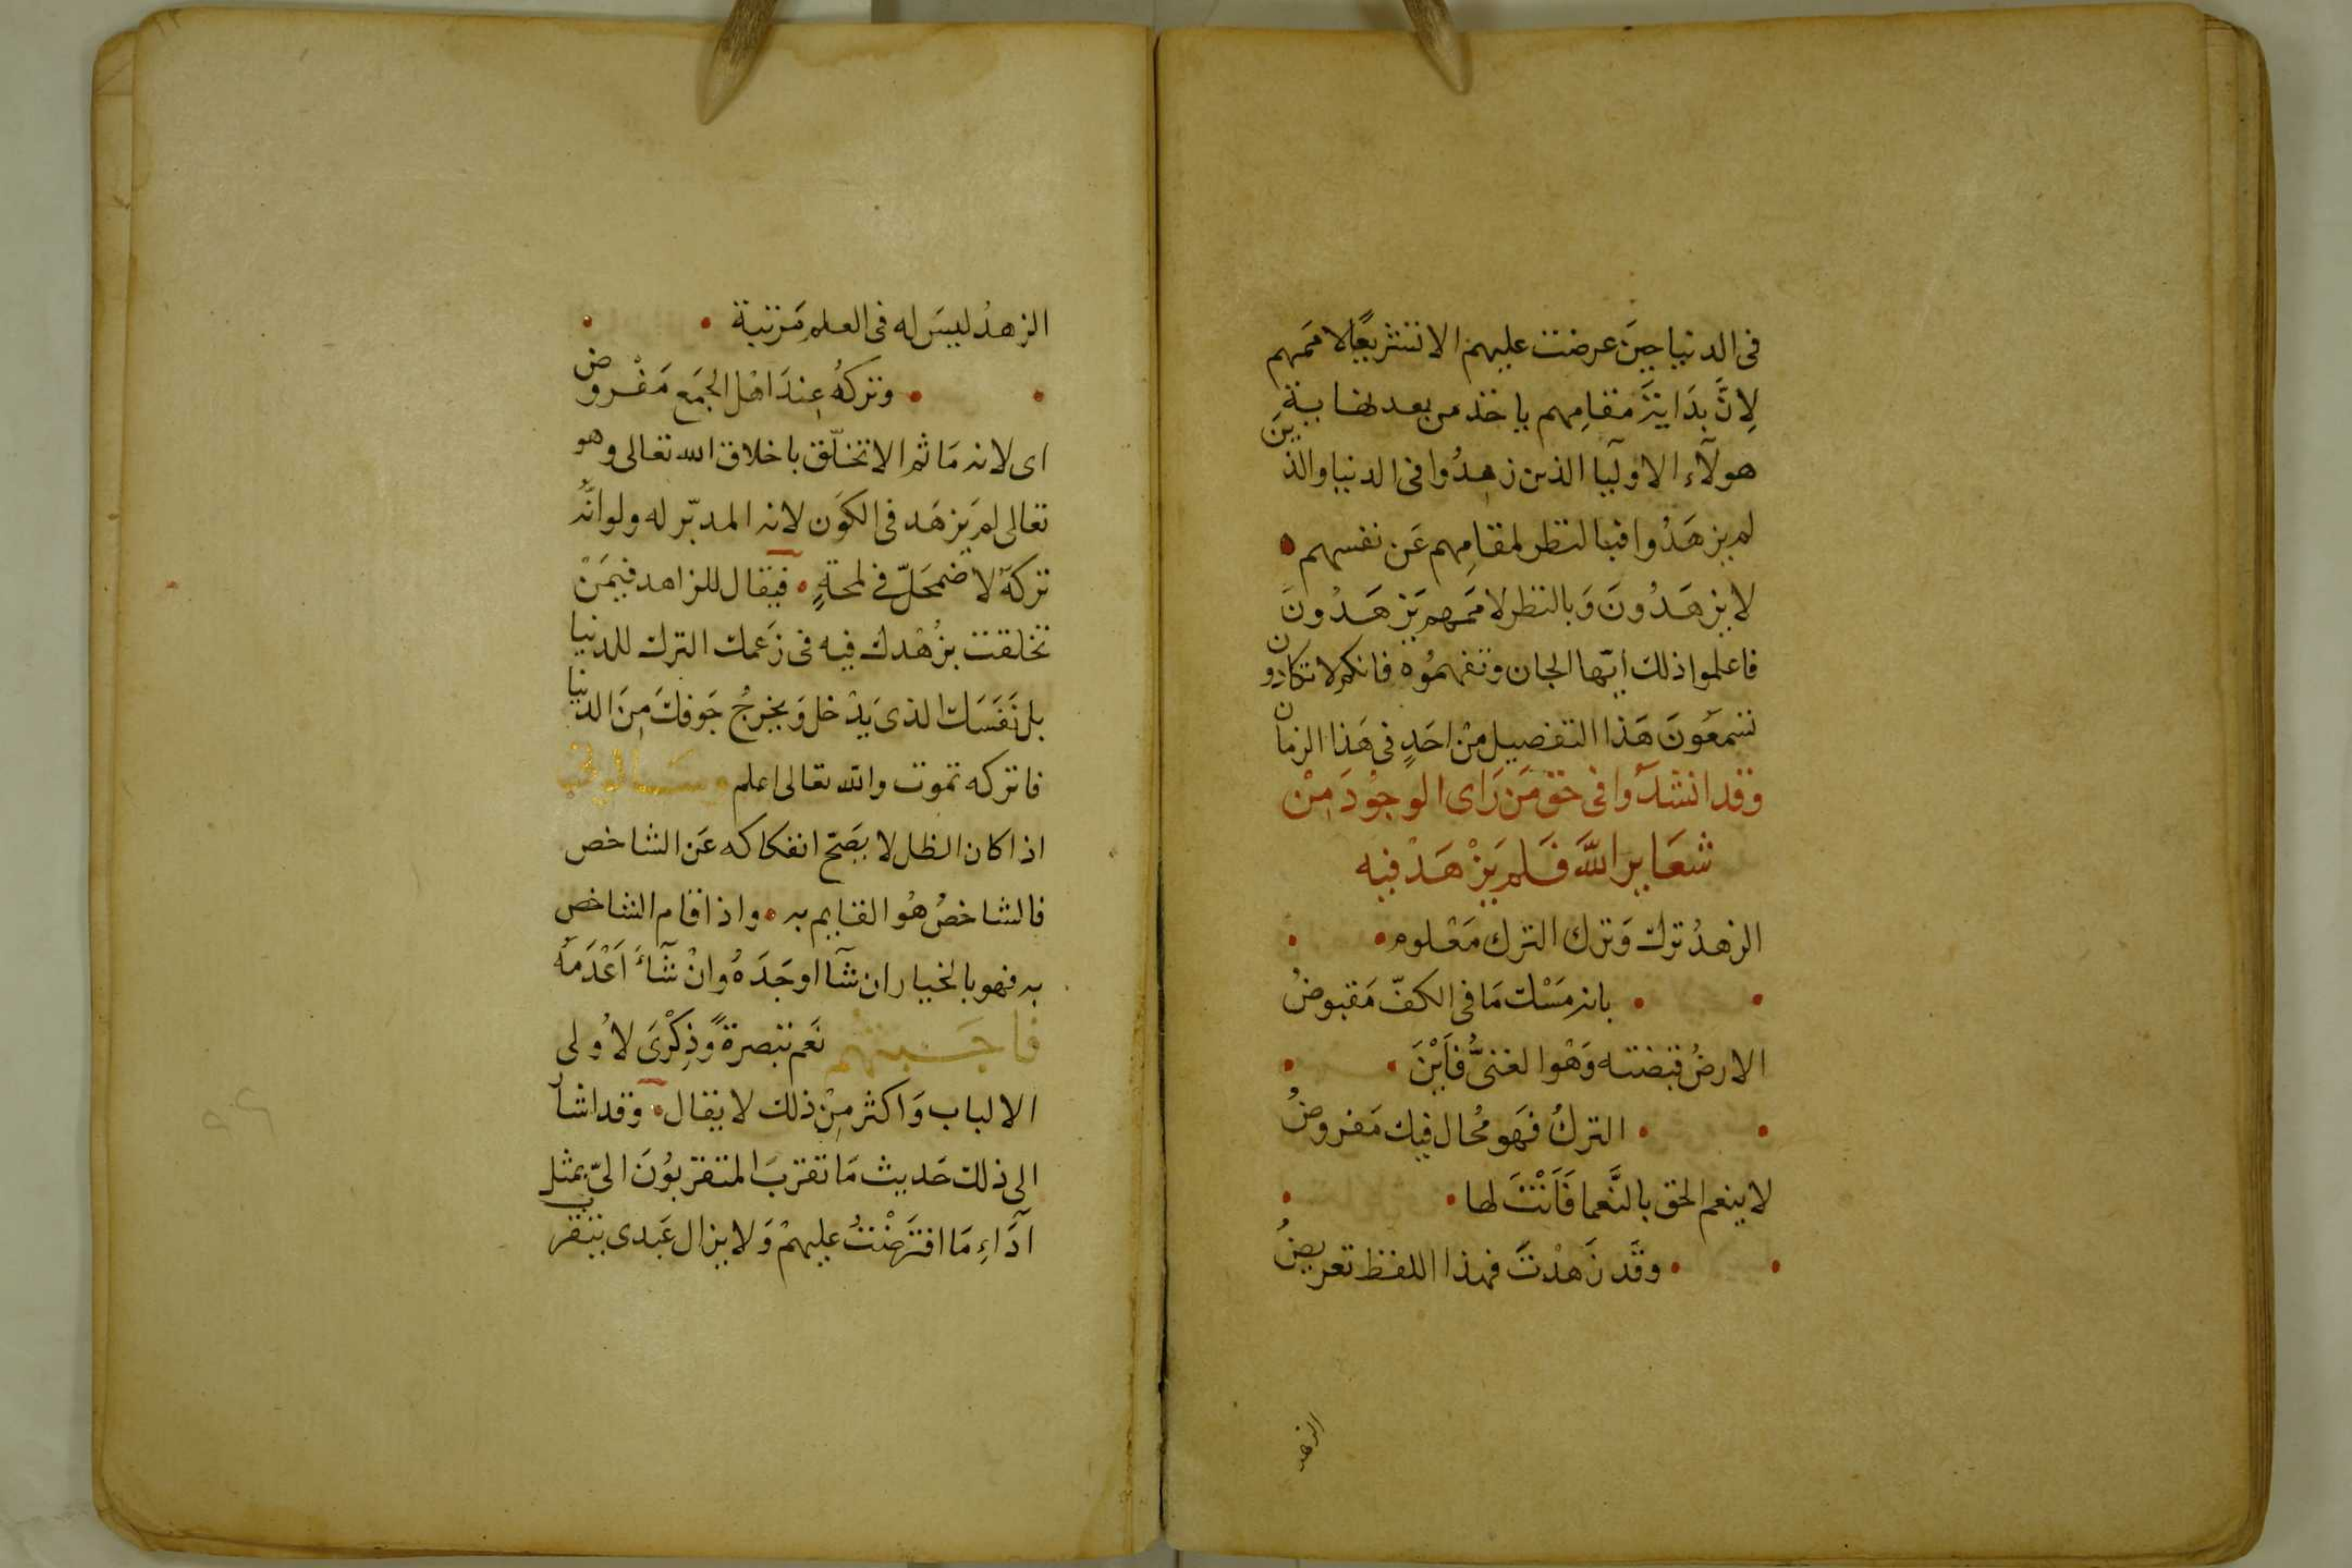 فى الدنيا حِينَ عرضت عليهم الا تشريعًا لاممهم
لِانَّ بِدَاية مقامِهم ياخذ من بعد نهاية
هولآء الاوليا الذين زهِدُوا فى الدنيا والذين
لم يزهَدُوا فبالنظر لمقامِهم عَن نفسهم
لا يزهَدُونَ وَبالنظر لاممهم يَزهَدُونَ
فاعلموا ذلك ايّها الجان وتفهمُوه فانكم لا تكادون
تسمعُونَ هَذا التفصيل مِنْ احَدٍ فى هَذا الزمان
وقد انشدُوا فى حَق مَن رَاى الوجُودَ مِنْ
شعَاير اللَّه فَلم يَزْهَدْ فيه
الزهدُ تركٌ وَترك الترك مَعْلوم
بانه مَسْك مَا فى الكفّ مَقبوضُ
الارضُ قبضته وَهْوا لغنىُّ فَأَيْنَ
التركُ فهَو مُحال فيك مَفروضُ
لا ينعم الحق بالنَّعما فَأَنْتَ لها
وقَد زَهدْتَ فهذا اللفظ تعريضُ
الزهد
الزهدُ ليسَ له فى العلم مَرتبة
وتركهُ عِندَ اهْل الجَمَع مَفْروض
اى لانه مَا ثم الا تخلّق باخلاق الله تعالى وهو
تعالى لم يَزهَد فى الكوَن لانه المدبّر له ولو انَّهُ
تركهُ لاضمحَلّ فى لمحةٍ فيقال للزاهد فيمَنْ
تخلقت بزُهْدك فيه فى زَعمك الترك للدنيا
بل نَفَسَك الذى يَدْخل وَيخرجُ جَوفكَ مِنَ الدنيا
فاتركه تموت والله تعالى اعلم
اذا كان الظل لا يَصَحّ انفكاكه عَن الشاخص
فالشاخصُ هُو القايم به واذا قام الشاخص
به فهو بالخيار ان شآ اوجَدَهُ وانْ شَآءَ اَعْدَمَهُ
فاجــبتهُم نَعَم تبصرةً وَّذِكْرَى لأُولى
الالباب وَاكثر مِنْ ذلك لا يقال وقد اشار
الى ذلك حَديث مَا تقربَ المتقربُونَ الىّ بمثل
آدَاءِ مَا افتَرَضْتُ عليهمْ وَلا يزال عَبدى يتقرب